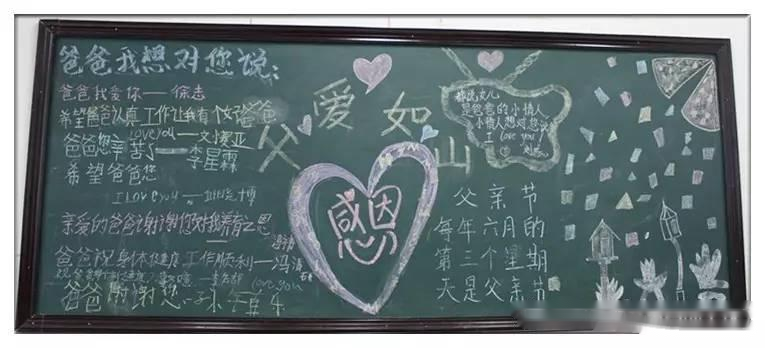 爸爸我想对您说:
爸爸我爱你——徐志
希望爸爸认真工作让我有个好爸爸
Love you
爸爸您辛苦了——李星霖
希望爸爸您
I Love you
亲爱的爸爸谢谢您对我养育之恩
爸爸祝身体健康工作顺利——冯
Love you
爸爸谢谢您
父爱如山
感恩
都说女儿
是爸爸的小情人
小情人想对您说
I Love you
父亲节
每年六月的
第三个星期
天是父亲节